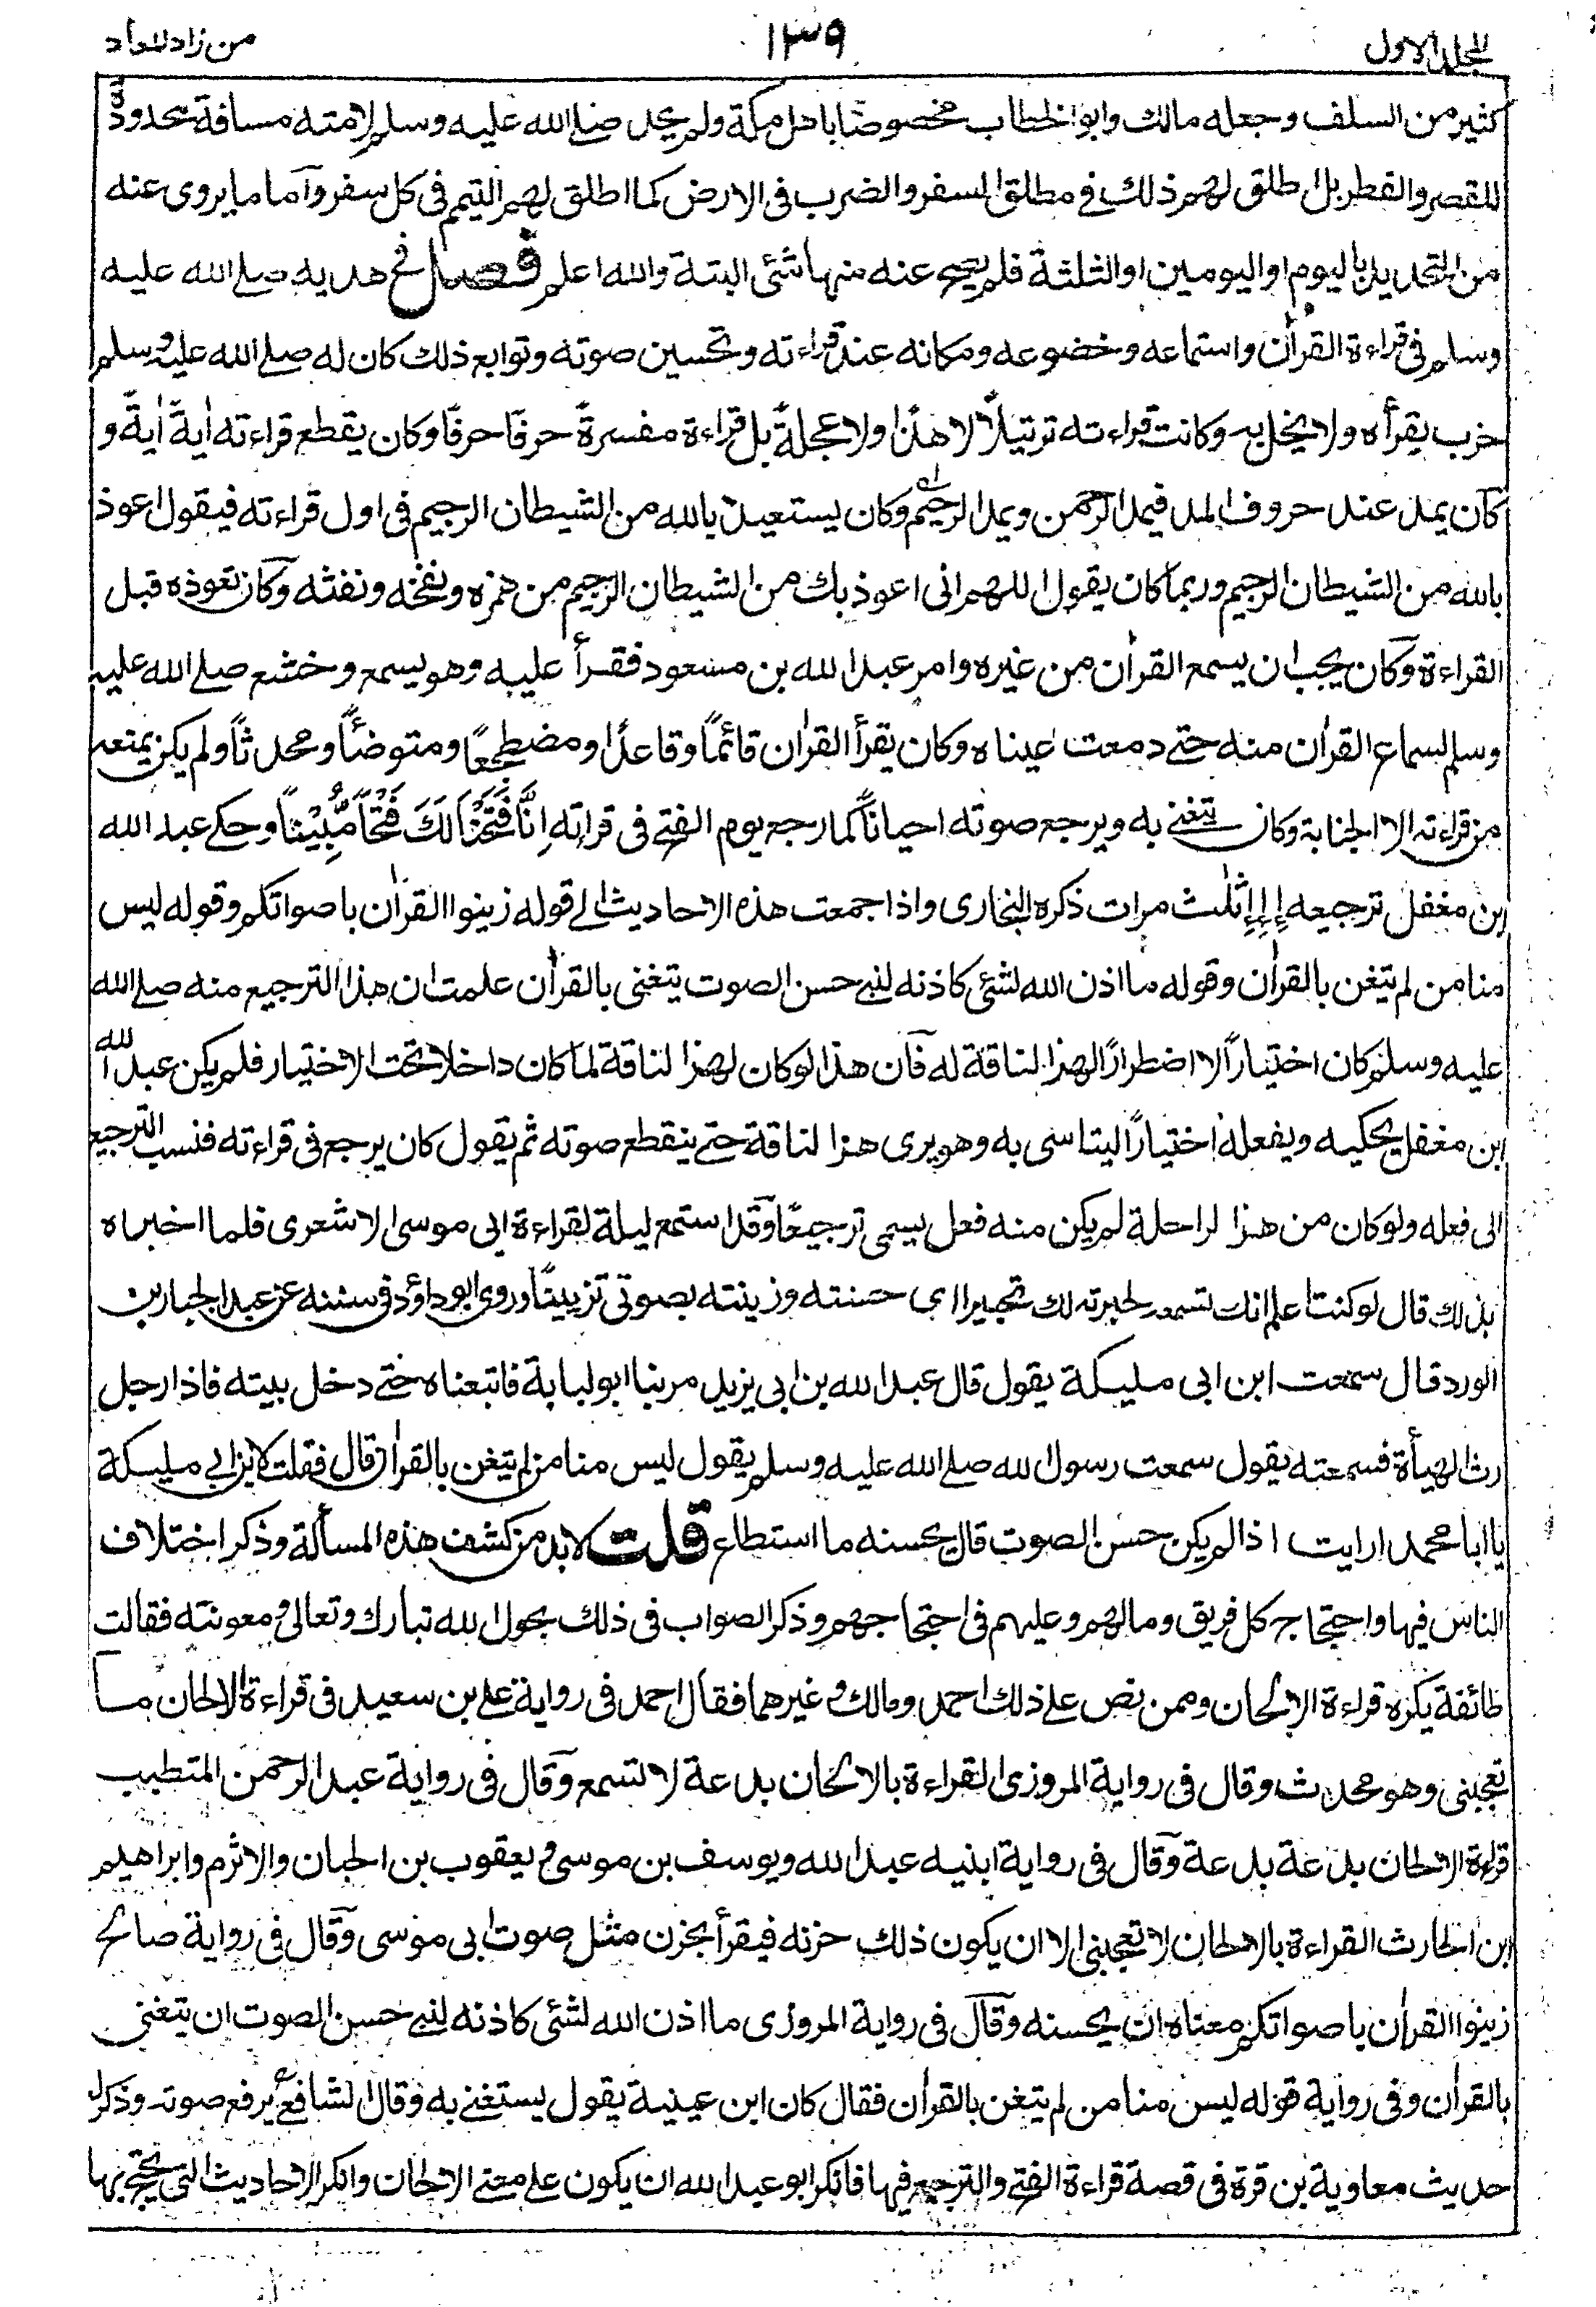 المجلد الاول
١٣٩
من زاد المعاد
كثير من السلف وجعله مالك وابو الخطاب مخصوصًا باهل مكة ولم يحد صلے الله عليه وسلم لامته مسافة محدودة
للقصر والفطر بل اطلق لهم ذلك فى مطلق السفر والضرب فى الارض كما اطلق لهم التيمم فى كل سفر وآما ما يروى عنه
من التحديد باليوم او اليومين او الثلثة فلم يصح عنه منها شئى البتة والله اعلم فصل فى هديه صلے الله عليه
وسلم فى قراءة القراٰن واستماعه وخضوعه ومكانه عند قراءته وتحسين صوته وتوابع ذلك كان له صلے الله عليه وسلم
حزب يقرأه ولا يخل به وكانت قراءته ترتيلًا لا هذًا ولا عجلةً بل قراءة مفسرةً حرفًا حرفًا وكان يقطع قراءته اٰيةً اٰيةً و
كان يمد عند حروف المد فيمد الرحمن ويمد الرحيم وكان يستعيذ بالله من الشيطان الرجيم فى اول قراءته فيقول اعوذ
بالله من الشيطان الرجيم وربما كان يقول اللهم انى اعوذ بك من الشيطان الرجيم من همزه ونفخه ونفثه وكان تعوذه قبل
القراءة وكان يحب ان يسمع القراٰن من غيره وامر عبد الله بن مسعود فقرأ عليه وهو يسمع وخشع صلے الله عليه
وسلم لسماع القراٰن منه حتے دمعت عيناه وكان يقرأ القراٰن قائمًا وقاعدًا ومضطجعًا ومتوضئًا ومحدثًا ولم يكن يمنعه
من قراءته الا الجنابة وكان يتغنے به ويرجع صوته احيانًا كما رجع يوم الفتح فى قراته اِنَّا فَتَحْنَا لَكَ فَتْحًا مُّبِيْنًا وحكے عبد الله
بن مغفل ترجيعه إإإ ثلٰث مرات ذكره البخارى واذا جمعت هذه الاحاديث الے قوله زينوا القراٰن باصواتكم وقوله ليس
منا من لم يتغن بالقراٰن وقوله ما اذن الله لشئى كاذنه لنبے حسن الصوت يتغنى بالقراٰن علمت ان هذا الترجيع منه صلے الله
عليه وسلم كان اختيارًا لا اضطرارًا لهذا لناقة له فآن هذا لو كان لهذا لناقة لما كان داخلا تحت الاختيار فلم يكن عبد الله
ابن مغفل يحكيه ويفعله اختيارًا ليتاسى به وهو يرى هذا لناقة حتے ينقطع صوته ثم يقول كان يرجع فى قراءته فنسب الترجيع
الى فعله ولو كان من هذا لراحلة لم يكن منه فعل يسمى ترجيعًا وقد استمع ليلة لقراءة ابى موسى الاشعرى فلما اخبراه
بذلك قال لو كنت اعلم انك تسمعه لحبرته لك تحبيرا اى حسنته وزينته بصوتى تزيينًا وروى ابو داؤد فى سننه عن عبد الجبار بن
الورد قال سمعت ابن ابى مليكة يقول قال عبد الله بن ابى يزيد مر بنا ابو لبابة فاتبعناه حتے دخل بيته فاذا رجل
رث الهيأة فسمعته يقول سمعت رسول الله صلے الله عليه وسلم يقول ليس منا من لم يتغن بالقراٰن قال فقلت لابن ابى مليكة
يا ابا محمد ارايت اذا لم يكن حسن الصوت قال يحسنه ما استطاع قلت لابد من كشف هذه المسألة وذكر اختلاف
الناس فيها واحتجاج كل فريق وما لهم وعليهم فى احتجاجهم وذكر الصواب فى ذلك بحول الله تبارك وتعالى ومعونته فقالت
طائفة يكره قراءة الالحان وممن نص علے ذلك احمد ومالك وغيرهما فقال احمد فى رواية علے بن سعيد فى قراءة الالحان ما
تعجبنى وهو محدث وقال فى رواية المروزى القراءة بالالحان بدعة لا تسمع وقال فى رواية عبد الرحمن المتطبب
قراءة الالحان بدعة بدعة وقال فى رواية ابنيه عبد الله ويوسف بن موسى ويعقوب بن الحبان والاثرم وابراهيم
ابن الحارث القراءة بالالحان لا تعجبنى الا ان يكون ذلك حزنه فيقرأ بحزن مثل صوت ابى موسى وقال فى رواية صالح
زينوا القراٰن باصواتكم معناه ان يحسنه وقال فى رواية المروزى ما اذن الله لشئى كاذنه لنبے حسن الصوت ان يتغنى
بالقراٰن وفى رواية قوله ليس منا من لم يتغن بالقراٰن فقال كان ابن عيينة يقول يستغنے به وقال الشافعى يرفع صوته وذكر له
حديث معاوية بن قرة فى قصة قراءة الفتح والترجيع فيها فانكر ابو عبد الله ان يكون علے معنے الالحان وانكر الاحاديث التى يحتج بها